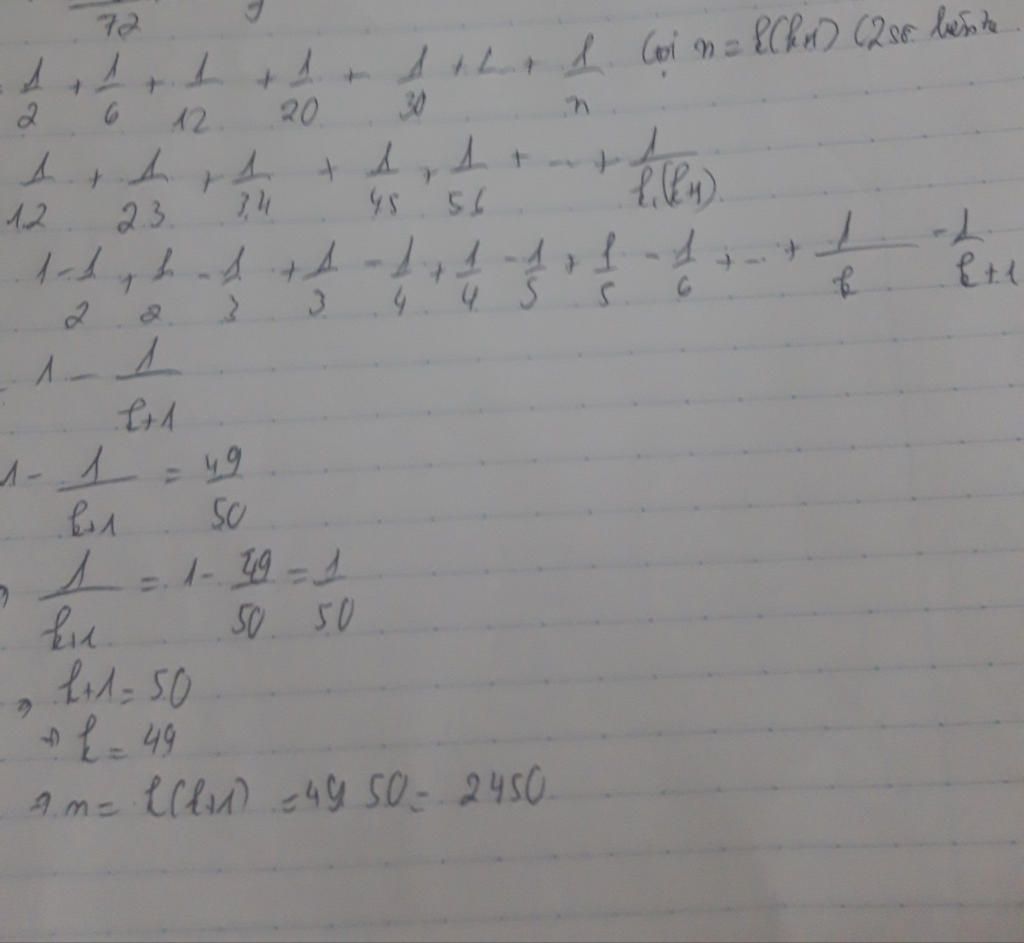 72 9
1/2 + 1/6 + 1/12 + 1/20 + 1/30 + ... + 1/n Gọi n = k(k+1) (2 số liên tiếp
1/1.2 + 1/2.3 + 1/3.4 + 1/4.5 + 1/5.6 + ... + 1/k.(k+1)
1 - 1/2 + 1/2 - 1/3 + 1/3 - 1/4 + 1/4 - 1/5 + 1/5 - 1/6 + ... + 1/k - 1/k+1
1 - 1/k+1
1 - 1/k+1 = 49/50
1/k+1 = 1 - 49/50 = 1/50
⇒ k+1 = 50
⇒ k = 49
⇒ n = k(k+1) = 49.50 = 2450